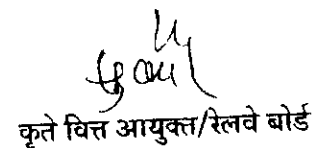 कृते वित्त आयुक्त/रेलवे बोर्ड